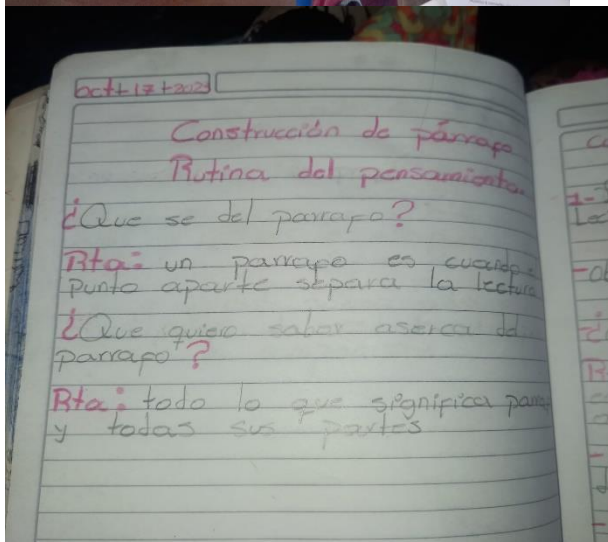 oct + 17 + 202
Construcción de párrafo
Rutina del pensamiento.
¿Que se del parrafo?
Rta: un parrafo es cuando
punto aparte separa la lectura
¿Que quiero saber aserca del
parrafo?
Rta: todo lo que significa
y todas sus partes
1-